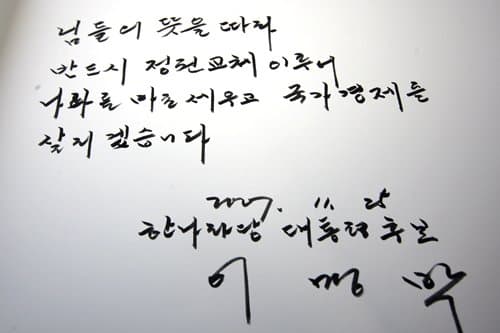 님들의 뜻을 따라
반드시 정권교체 이루어
나라를 바로 세우고 국가경제를
살리겠습니다
2007. 11. 25
한나라당 대통령 후보
이 명 박